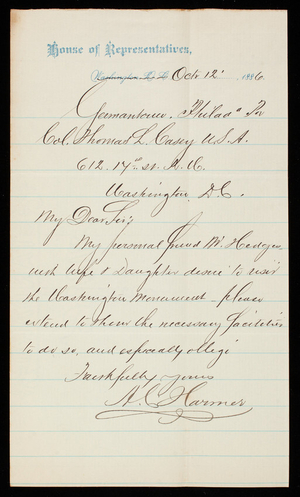 House of Representatives,
Washington, D. C. Oct. 12' 1886.
Germantown, Philad^a Pa
Col. Thomas L. Casey U.S.A.
612. 17th st. N.W.
Washington, D.C.
My Dear Sir;
My personal friend Mr. Hedges,
with wife & Daughter desire to visit
the Washington Monument. please
extend to them the necessary facilities
to do so, and especially oblige
Faithfully yours
A. C. Harmer